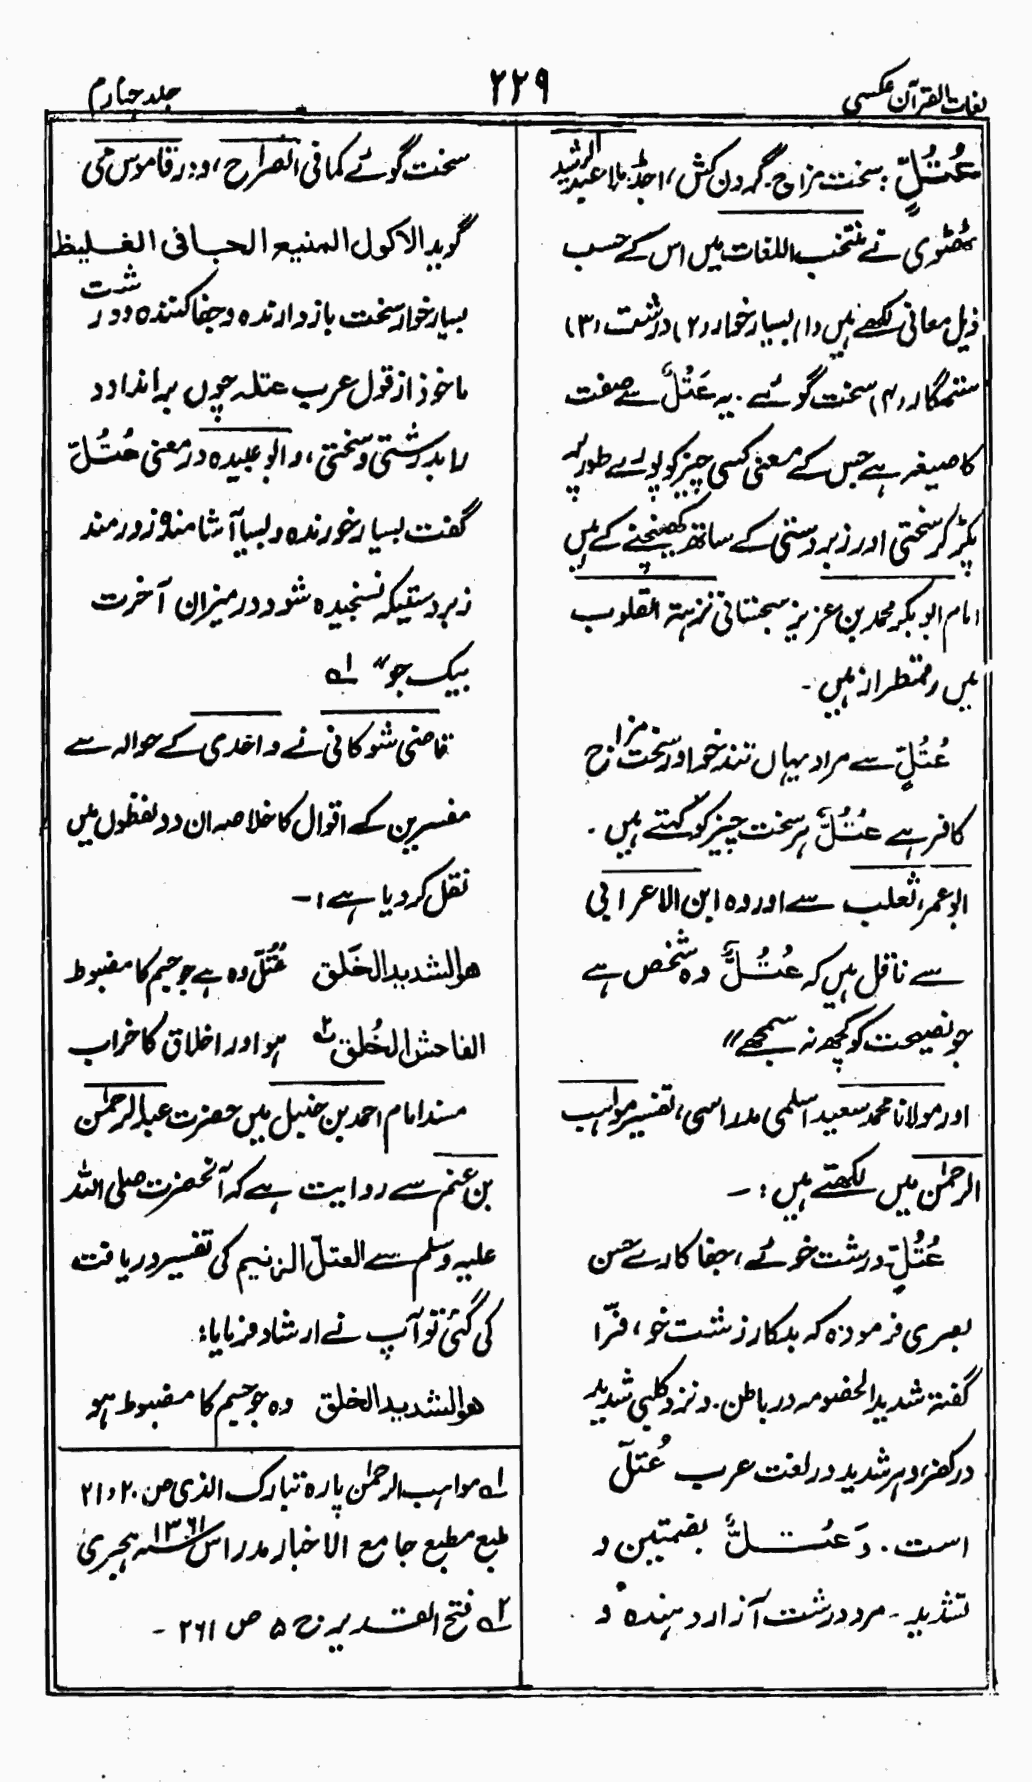 لغات القرآن عکسی
۲۲۹
جلد چہارم
عُتُلٍّ: سخت مزاج، گردن کش، اجڈ۔ ملا عبدالرشید
ٹھٹوی نے منتخب اللغات میں اس کے حسب
ذیل معانی لکھے ہیں (۱) بسیار خوار (۲) درشت (۳)
ستمگار (۴) سخت گوئے۔ یہ عَتْلٌ سے صفت
کا صیغہ ہے جس کے معنی کسی چیز کو پورے طور پر
پکڑ کر سختی اور زبردستی کے ساتھ کھینچنے کے ہیں
امام ابوبکر محمد بن عزیز سجستانی نزہۃ القلوب
میں رقمطراز ہیں۔
عُتُلٍّ سے مراد یہاں تندخو اور سخت مزاج
کافر ہے عُتُلٌّ ہر سخت چیز کو کہتے ہیں۔
ابو عمر، ثعلب سے اور وہ ابن الاعرابی
سے ناقل ہیں کہ عُتُلٌّ وہ شخص ہے
جو نصیحت کو کچھ نہ سمجھے"
اور مولانا محمد سعید اسلمی مدراسی، تفسیر مواہب
الرحمٰن میں لکھتے ہیں :۔
عُتُلٍّ درشت خوئے، جفا کارے حسن
بصری فرمودہ کہ بدکار زشت خو، فرّا
گفتہ شدید الخصومہ در باطن۔ ونزد کلبی شدید
در کفر، وہر شدید در لغت عرب عُتلّ
است۔ وَعُتُلٌّ بضمتین و
تشدید۔ مرد درشت آزار دہندہ و
سخت گوئے کما فی الصراح، ودر قاموس می
گوید الاکول المنیع الجافی الغلیظ
بسیار خوار سخت بازدارندہ وجفا کنندہ ودرشت
ماخوذ از قول عرب عتلہ چوں براندا دد
را بدرشتی وسختی، وابو عبیدہ در معنی عُتُلّ
گفت بسیار خورندہ وبسیار آشامندہ زورمند
زبردستیکہ نسنجیدہ شود در میزان آخرت
بیک جو" ۱ہ
قاضی شوکانی نے واحدی کے حوالہ سے
مفسرین کے اقوال کا خلاصہ ان دو لفظوں میں
نقل کردیا ہے :۔
ھو الشدید الخَلق عُتُلّ وہ ہے جو جسم کا مضبوط
الفاحش الخُلق ۲ہ ہو اور اخلاق کا خراب
مسند امام احمد بن حنبل میں حضرت عبدالرحمٰن
بن غنم سے روایت ہے کہ آنحضرت صلی اللہ
علیہ وسلم سے العتلّ الزنیم کی تفسیر دریافت
کی گئی تو آپ نے ارشاد فرمایا:
ھو الشدید الخلق وہ جو جسیم کا مضبوط ہو
۱ہ مواہب الرحمٰن پارہ تبارک الذی ص ۲۰، ۲۱
طبع مطبع جامع الاخبار مدراس ۱۳۶۱ ہجری
۲ہ فتح القدیر ج ۵ ص ۲۶۱۔